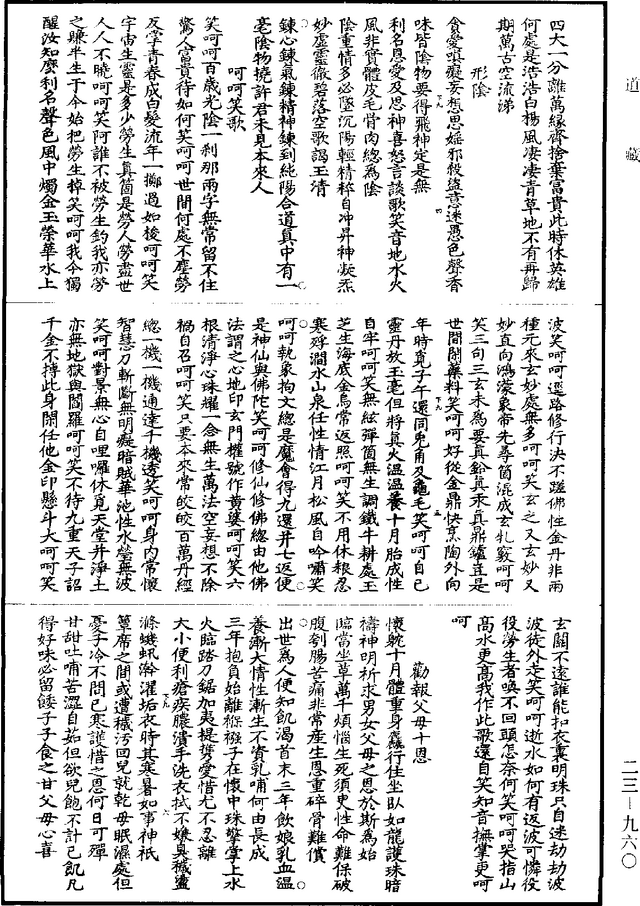 道藏
四大一分離萬緣齊捨棄富貴此時休英雄
何處是浩浩白楊風凄凄青草地不有再歸
期萬古空流涕
形陰
貪愛嗔癡妄想思婬邪殺盜意迷愚色聲香
味皆陰物要得飛神定是無
利名恩愛及思神喜怒言談歌笑音地水火
風非實體皮毛骨肉總為陰
陰重情多必墜沉陽輕精粹自冲昇神凝炁
妙虛靈徹碧落空歌謁玉清
鍊心鍊氣鍊精神鍊到純陽合道真中有一
毫陰物撓許君未見本來人
呵呵笑歌
笑呵呵百歲光陰一剎那兩字無常留不住
驚人富貴待如何笑呵呵世間何處不塵勞
反掌青春成白髮流年一擲過如梭呵呵笑
宇宙生靈是多少勞生真箇是勞人勞盡世
人人不曉呵呵笑阿誰不被勞生釣我亦勞
之賺半生于今始把勞生掉笑呵呵我今獨
醒汝知麼利名聲色風中燭金玉榮華水上
波笑呵呵逕路修行決不蹉佛性金丹非兩
種元來玄妙處無多呵呵笑玄之又玄妙又
妙直向鴻濛象帝先尋箇混成玄牝竅呵呵
笑三句三玄未為要真鉛真汞真鼎鑪豈是
世間閑藥料笑呵呵好從金鼎快烹陶外向
年時真子午還同兔角及龜毛笑呵呵自己
靈丹放玉毫但將真火溫溫養十月胎成性
自牢呵呵笑無絃彈箇無生調鐵牛耕處玉
芝生海底金烏常返照呵呵笑不用休粮忍
寒殍澗水山泉任性情江月松風自吟嘯笑
呵呵執象拘文總是魔會得九還并七返便
是神仙與佛陀笑呵呵修仙修佛總由他佛
法謂之心地印玄門權號作黃婆呵呵笑六
根清淨心珠耀一念無生萬法空妄想不除
禍自召呵呵笑只要本來常皎皎百萬丹經
總一機一機通達千機透笑呵呵身內常懷
智慧刀斬斷無明癡暗賊華池性水瑩無波
笑呵呵對景無心自哩囉休覓天堂并淨土
亦無地獄與閻羅呵呵笑不待九重天子詔
千金不摶此身閑任他金印懸斗大呵呵笑
玄關不遠誰能扣衣裏明珠只自迷劫劫波
波徒外走笑呵呵逝水如何有返波可憐役
役勞生者喚不回頭怎奈何笑呵呵哭指山
高水更高我作此歌還自笑知音撫掌更呵
呵
勸報父母十恩
懷躭十月體重身羸行住坐臥如龍護珠暗
禱神明祈求男女父母之恩於斯為始
臨當坐草萬千煩惱生死須臾性命難保破
腹刳腸苦痛非常產生恩重碎骨難償
出世為人便知飢渴首末三年飲娘乳血溫
養漸大情性漸生不資乳哺何由長成
三年抱負始離褓襁子在懷中珠擎掌上水
火臨踏刀鋸加夷提携愛惜尤不忍離
大小便利瘡疾膿潰手洗衣拭不嫌臭穢盪
滌蟣虱澣濯垢衣時其寒暑如事神祇
簟席之間或遭穢污回兒就乾母眠濕處但
憂子冷不問已寒護惜之恩何日可殫
甘甜吐哺苦澀自茹但欲兒飽不計己飢凡
得好味必留餧子子食之甘父母心喜
二三—九六〇